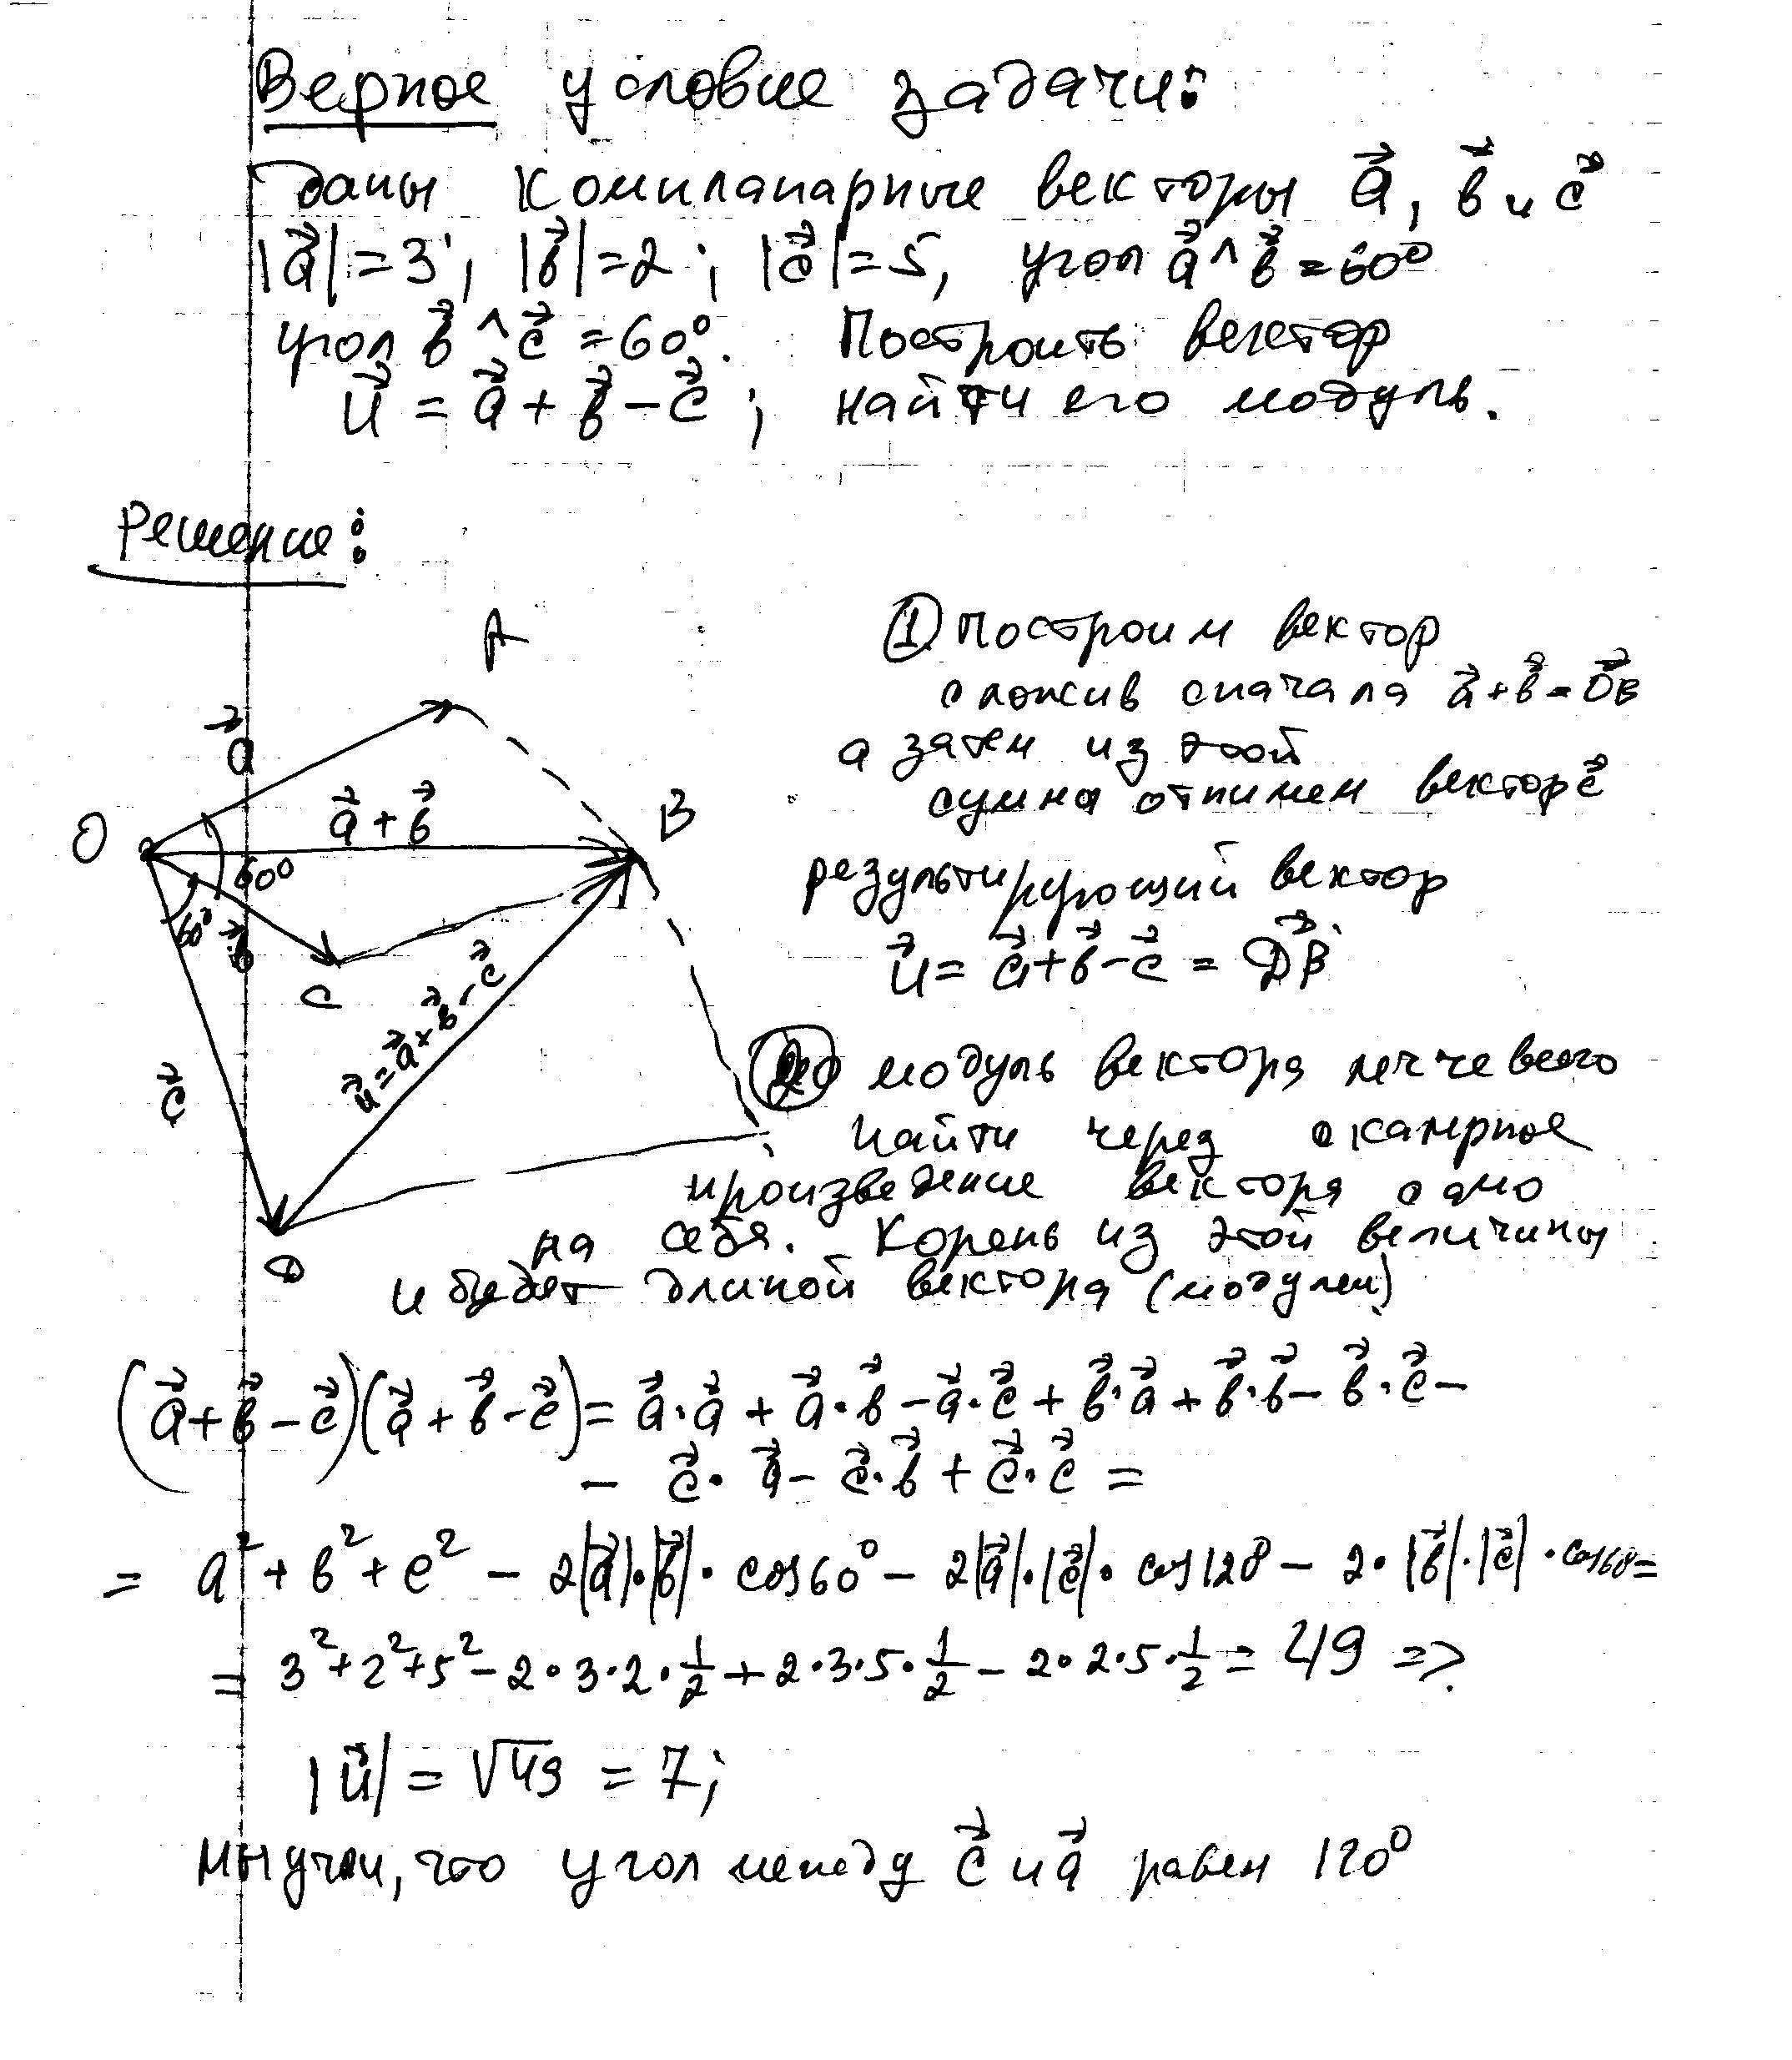 Верное условие задачи:
даны компланарные векторы a⃗, b⃗ и c⃗
|a⃗|=3; |b⃗|=2; |c⃗|=5, угол a⃗^b⃗=60°
угол b⃗^c⃗=60°. Построить вектор
u⃗ = a⃗+b⃗-c⃗; найти его модуль.
Решение:
① построим вектор
сложив сначала a⃗+b⃗=O⃗B
а затем из этой
суммы отнимем вектор c⃗
результирующий вектор
u⃗ = a⃗+b⃗-c⃗ = D⃗B
A
a⃗
O
a⃗+b⃗
B
60°
60°
b⃗
C
c⃗
u⃗=a⃗+b⃗-c⃗
D
② модуль вектора легче всего
найти через скалярное
произведение вектора само
на себя. Корень из этой величины
и будет длиной вектора (модулем)
(a⃗+b⃗-c⃗)(a⃗+b⃗-c⃗)= a⃗·a⃗ + a⃗·b⃗ - a⃗·c⃗ + b⃗·a⃗ + b⃗·b⃗ - b⃗·c⃗ -
- c⃗·a⃗ - c⃗·b⃗ + c⃗·c⃗ =
= a²+b²+c² - 2|a⃗|·|b⃗|·cos60° - 2|a⃗|·|c⃗|·cos120° - 2·|b⃗|·|c⃗|·cos60=
= 3²+2²+5²-2·3·2·1/2+2·3·5·1/2-2·2·5·1/2 = 49 =>
|u⃗| = √49 = 7;
мы учли, что угол между c⃗ и a⃗ равен 120°